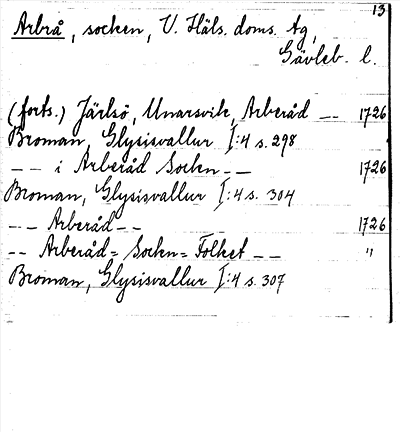 13
Arbrå, socken, V. Häls. doms. tg,
Gävleb. l.
(forts.) Järlsö, Unarsvik, Arberåd -- 1726
Broman, Glysisvallur I:4 s. 298
-- i Arberåd Socken -- 1726
Broman, Glysisvallur I:4 s. 304
-- Arberåd -- 1726
-- Arberåd= Sockn= Folket -- "
Broman, Glysisvallur I:4 s. 307